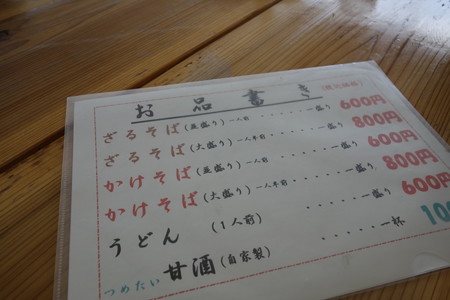 お品書き (税込価格)
ざるそば (並盛り) 一人前 ・・・・・一盛り 600円
ざるそば (大盛り) 一人半前 ・・・・・一盛り 800円
かけそば (並盛り) 一人前 ・・・・・一盛り 600円
かけそば (大盛り) 一人半前 ・・・・・一盛り 800円
うどん (1人前) ・・・・・一盛り 600円
つめたい 甘酒 (自家製) ・・・・・一杯 100